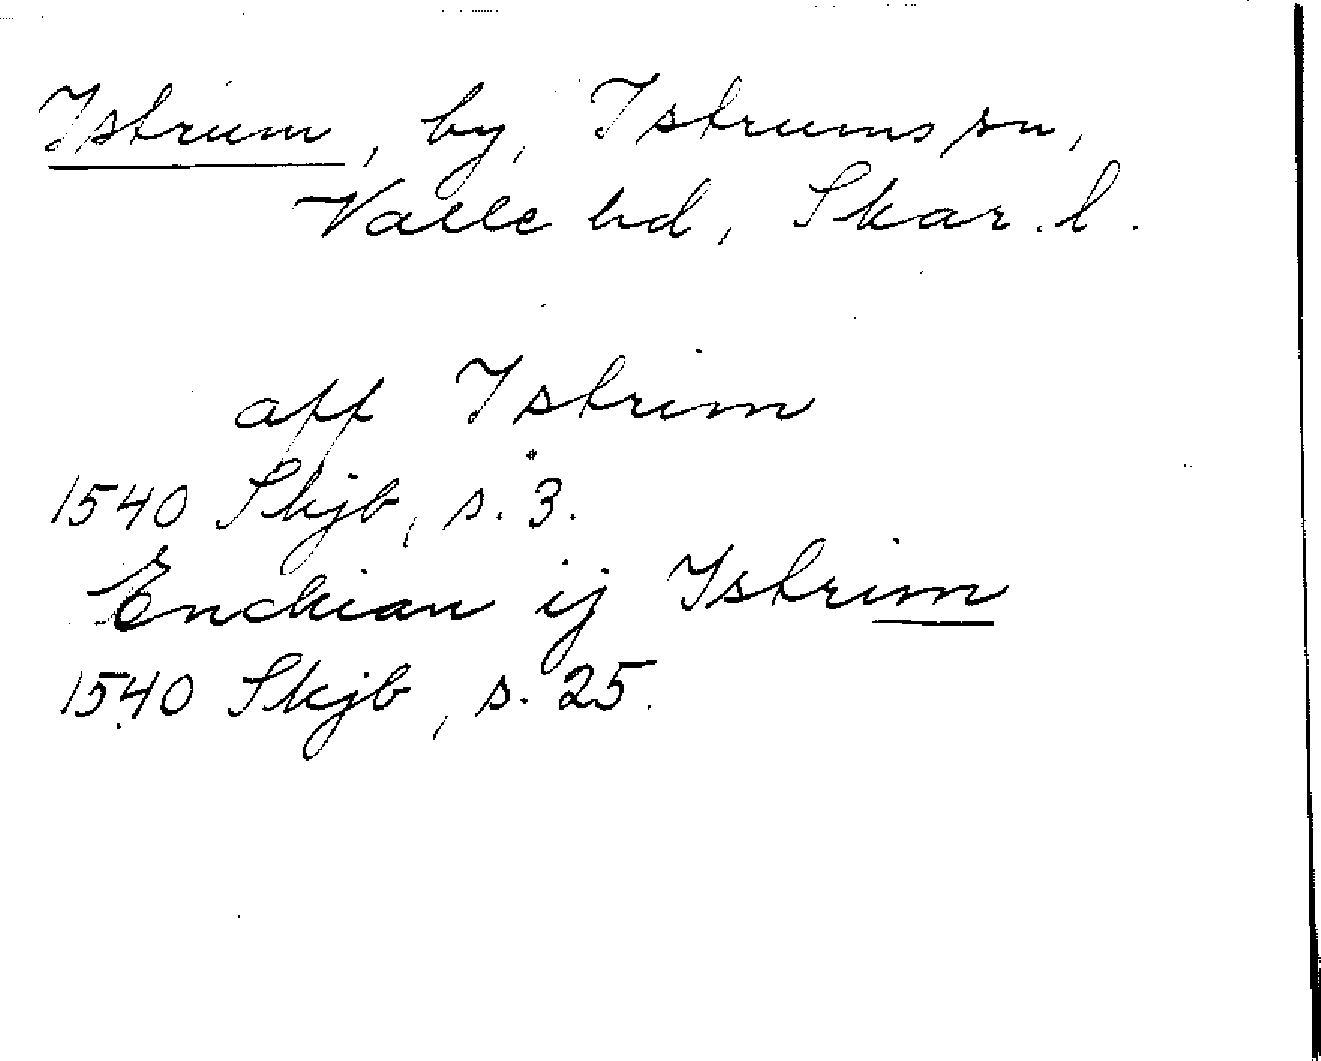 Istrum, by, Istrums sn,
Valle hd, Skar. l.
aff Istrim
1540 Skjb, s. 3.
Enckian ij Istrim
1540 Skjb, s. 25.